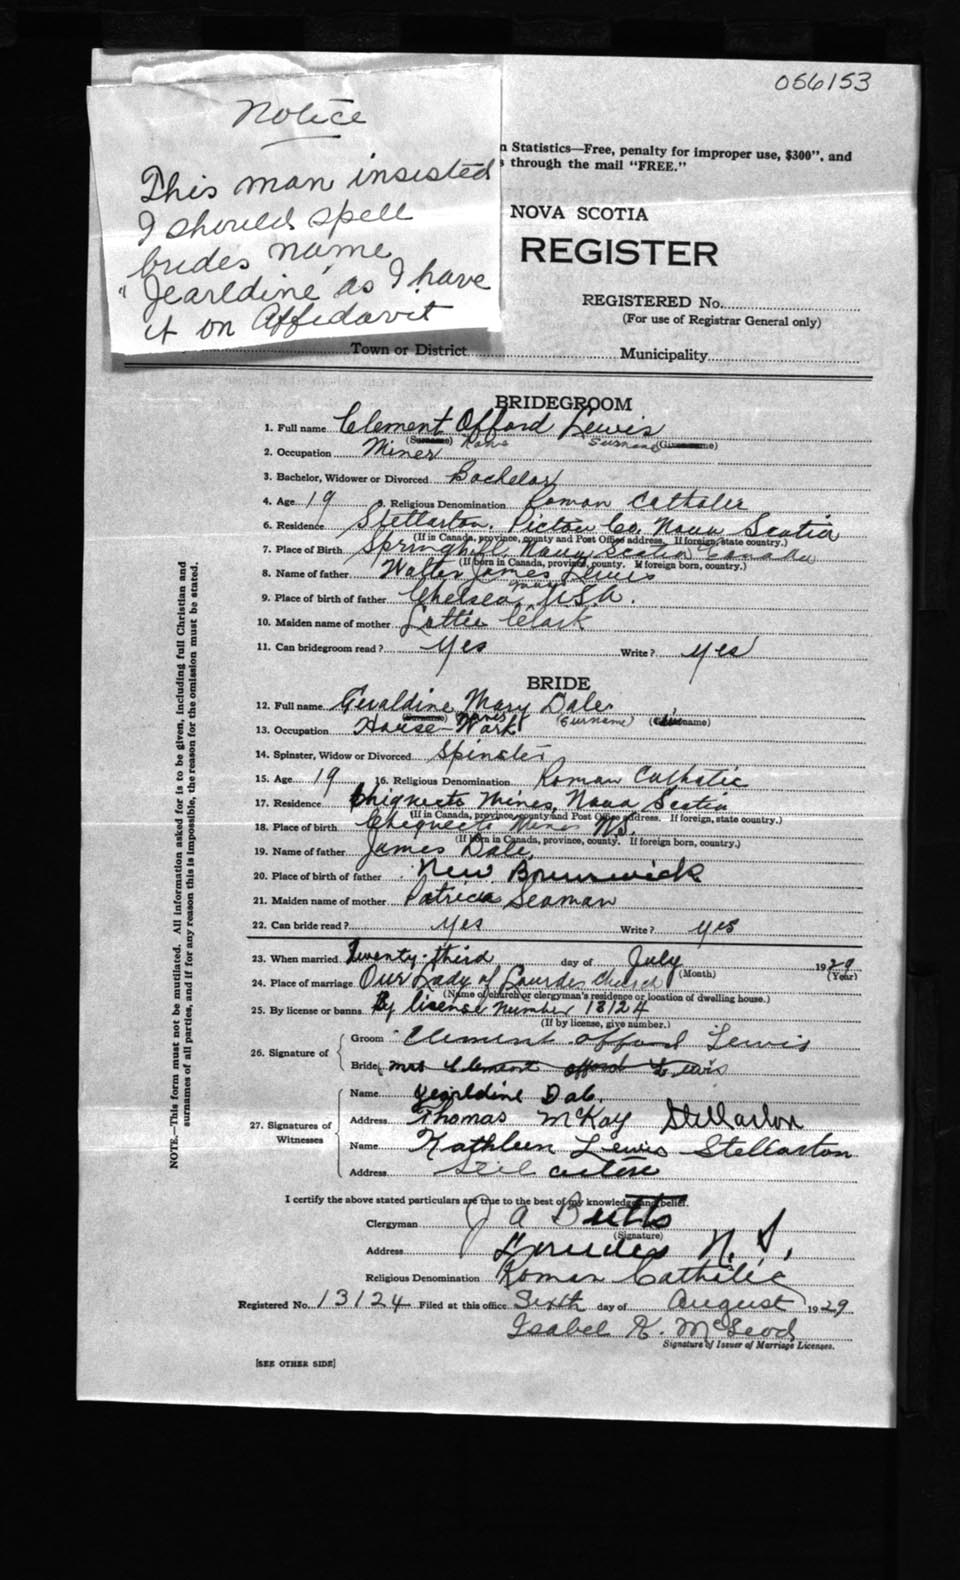 056153
Notice
This man insisted
I should spell
brides name
"Jearldine" as I have
it on Affidavit
n Statistics—Free, penalty for improper use, $300", and
s through the mail "FREE."
NOVA SCOTIA
REGISTER
REGISTERED No.
(For use of Registrar General only)
Town or District Municipality
BRIDEGROOM
1. Full name Clement Offord Lewis
(Surname) Name Surname (Given name)
2. Occupation Miner
3. Bachelor, Widower or Divorced Bachelor
4. Age 19 5. Religious Denomination Roman Catholic
6. Residence Stellarton, Pictou Co. Nova Scotia
(If in Canada, province, county and Post Office address. If foreign, state country.)
7. Place of Birth Springhill Nova Scotia Canada
(If born in Canada, province, county. If foreign born, country.)
8. Name of father Walter James Lewis
9. Place of birth of father Chelsea Mass U.S.A.
10. Maiden name of mother Lottie Clark
11. Can bridegroom read? Yes Write? Yes
BRIDE
12. Full name Geraldine Mary Dale
(Surname) Names (Surname) (name)
13. Occupation House-Work
14. Spinster, Widow or Divorced Spinster
15. Age 19 16. Religious Denomination Roman Catholic
17. Residence Chignecto Mines, Nova Scotia
(If in Canada, province, county and Post Office address. If foreign, state country.)
18. Place of birth Chignecto Mines NS.
(If born in Canada, province, county. If foreign born, country.)
19. Name of father James Dale
20. Place of birth of father New Brunswick
21. Maiden name of mother Patricia Seaman
22. Can bride read? Yes Write? yes
23. When married Twenty-third day of July 1929
(Month) (Year)
24. Place of marriage Our Lady of Lourdes Church
(Name of church or clergyman's residence or location of dwelling house.)
25. By license or banns By license number 13124
(If by license, give number.)
26. Signature of
Groom Clement offord Lewis
Bride Mrs Clement offord Lewis
27. Signatures of Witnesses
Name Jearldine Dale.
Address Thomas McKay Stellarton
Name Kathleen Lewis Stellarton
Address
I certify the above stated particulars are true to the best of my knowledge and belief.
Clergyman J A Butts
(Signature)
Address Lourdes N. S.
Religious Denomination Roman Catholic
Registered No. 13124 Filed at this office Sixth day of August 1929
Isabel K. McLeod
Signature of Issuer of Marriage Licenses.
[SEE OTHER SIDE]
NOTE.—This form must not be mutilated. All information asked for is to be given, including full Christian and
surnames of all parties, and if for any reason this is impossible, the reason for the omission must be stated.